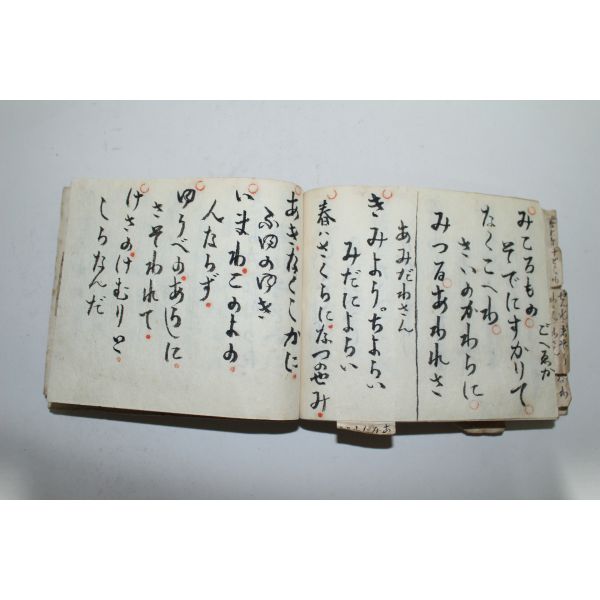 みてるもの
そでにすかりて
なくこへわ
さいのかわらに
みつるあわれさ
あみだわさん
きみよりちよらい
みだによらい
春はさくらになつのせみ
あきなくしかに
ふゆのゆき
いまわこのよの
人ならず
ゆうべのあらしに
さそわれて
けさのけむりと
しらなんだ